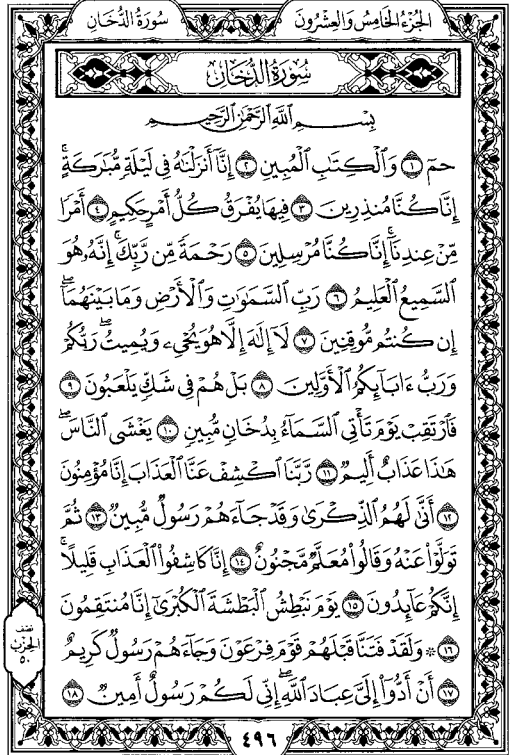 الجزء الخامس والعشرون
سورة الدخان
سُورَةُ الدُّخَانِ
بِسْمِ ٱللَّهِ ٱلرَّحْمَٰنِ ٱلرَّحِيمِ
حمٓ ١ وَٱلْكِتَٰبِ ٱلْمُبِينِ ٢ إِنَّآ أَنزَلْنَٰهُ فِى لَيْلَةٍ مُّبَٰرَكَةٍ ۚ
إِنَّا كُنَّا مُنذِرِينَ ٣ فِيهَا يُفْرَقُ كُلُّ أَمْرٍ حَكِيمٍ ٤ أَمْرًا
مِّنْ عِندِنَآ ۚ إِنَّا كُنَّا مُرْسِلِينَ ٥ رَحْمَةً مِّن رَّبِّكَ ۚ إِنَّهُۥ هُوَ
ٱلسَّمِيعُ ٱلْعَلِيمُ ٦ رَبِّ ٱلسَّمَٰوَٰتِ وَٱلْأَرْضِ وَمَا بَيْنَهُمَآ ۖ
إِن كُنتُم مُّوقِنِينَ ٧ لَآ إِلَٰهَ إِلَّا هُوَ يُحْىِۦ وَيُمِيتُ ۖ رَبُّكُمْ
وَرَبُّ ءَابَآئِكُمُ ٱلْأَوَّلِينَ ٨ بَلْ هُمْ فِى شَكٍّ يَلْعَبُونَ ٩
فَٱرْتَقِبْ يَوْمَ تَأْتِى ٱلسَّمَآءُ بِدُخَانٍ مُّبِينٍ ١٠ يَغْشَى ٱلنَّاسَ ۖ
هَٰذَا عَذَابٌ أَلِيمٌ ١١ رَّبَّنَا ٱكْشِفْ عَنَّا ٱلْعَذَابَ إِنَّا مُؤْمِنُونَ
١٢ أَنَّىٰ لَهُمُ ٱلذِّكْرَىٰ وَقَدْ جَآءَهُمْ رَسُولٌ مُّبِينٌ ١٣ ثُمَّ
تَوَلَّوْا۟ عَنْهُ وَقَالُوا۟ مُعَلَّمٌ مَّجْنُونٌ ١٤ إِنَّا كَاشِفُوا۟ ٱلْعَذَابِ قَلِيلًا ۚ
إِنَّكُمْ عَآئِدُونَ ١٥ يَوْمَ نَبْطِشُ ٱلْبَطْشَةَ ٱلْكُبْرَىٰٓ إِنَّا مُنتَقِمُونَ
١٦ ۞ وَلَقَدْ فَتَنَّا قَبْلَهُمْ قَوْمَ فِرْعَوْنَ وَجَآءَهُمْ رَسُولٌ كَرِيمٌ
١٧ أَنْ أَدُّوٓا۟ إِلَىَّ عِبَادَ ٱللَّهِ ۖ إِنِّى لَكُمْ رَسُولٌ أَمِينٌ ١٨
نصف
الحزب
٥٠
٤٩٦